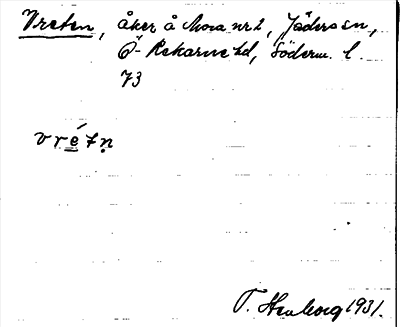 Vreten, åker å Mora nr 2, Jäders sn,
Ö- Rekarne hd, Söderm. l.
73
vrétn
1931.